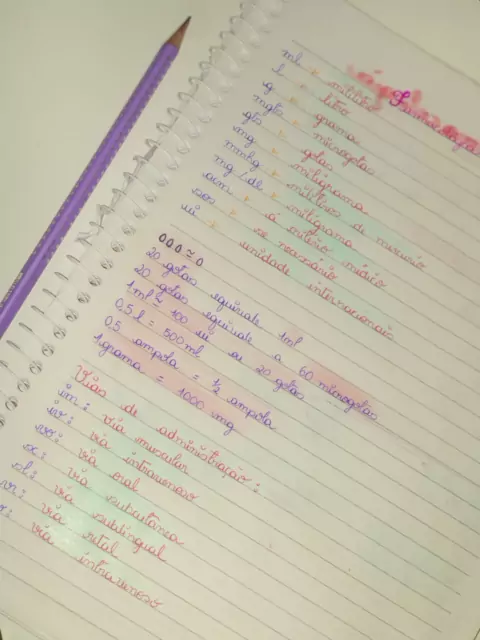 Farmacologia
ml → mililitro
l → litro
g → grama
mgts → microgotas
gts → gotas
mg → miligrama
mmhg → militros de mercurio
mg/dl → miligrama
acm → a critério médico
sos → se necessário
ui → unidade internacionais
20 gotas equivale 1ml
20 gotas equivale a 60 microgotas
1ml = 100 ui ou 20 gotas
0,5l = 500ml
0,5 ampola = 1/2 ampola
1grama = 1000 mg
Vias de administração:
im: via muscular
iv: via intravenoso
vo: via oral
sc: via subcutânea
sl: via sublingual
vr: via retal
via intravenoso